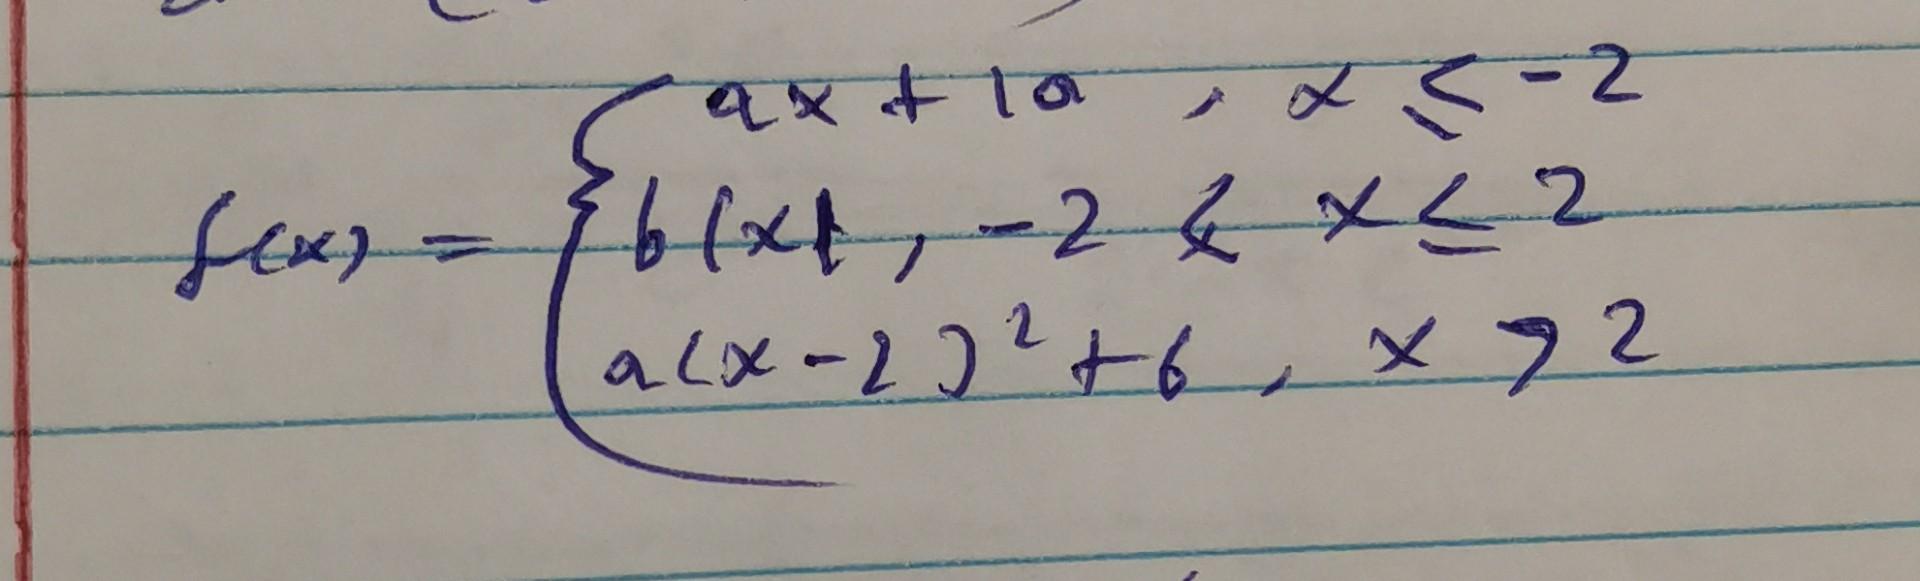 f(x) = { ax + 10 , x ≤ -2
b|x| , -2 < x ≤ 2
a(x-2)² + 6 , x > 2